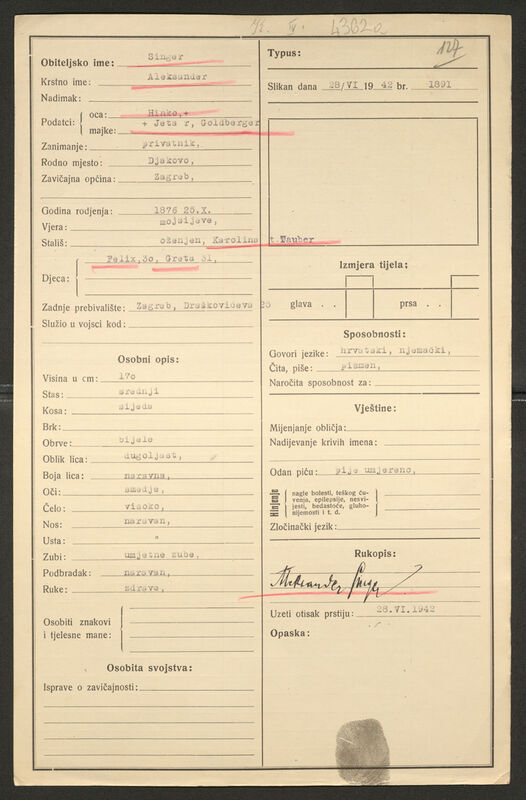 IV. 4362a
127
Obiteljsko ime: Singer
Krstno ime: Aleksander
Nadimak:
Podatci: oca: Hinko,+
majke: + Jeta r, Goldberger
Zanimanje: privatnik,
Rodno mjesto: Djakovo,
Zavičajna općina: Zagreb,
Godina rodjenja: 1876 25.X.
Vjera: mojsijeve,
Stališ: oženjen, Karolina t.Tauber
Felix,3o, Greta 31,
Djeca:
Zadnje prebivalište: Zagreb, Draškovićeva 25
Služio u vojsci kod:
Osobni opis:
Visina u cm: 17o
Stas: srednji
Kosa: sijeda
Brk:
Obrve: bijele
Oblik lica: dugoljast,
Boja lica: naravna,
Oči: smedje,
Čelo: visoko,
Nos: naravan,
Usta: "
Zubi: umjetne zube,
Podbradak: naravan,
Ruke: zdrave,
Osobiti znakovi
i tjelesne mane:
Osobita svojstva:
Isprave o zavičajnosti:
Typus:
Slikan dana 28/VI 1942 br. 1891
Izmjera tijela:
glava . . prsa . .
Sposobnosti:
Govori jezike: hrvatski, njemački,
Čita, piše: pismen,
Naročita sposobnost za:
Vještine:
Mijenjanje obličja:
Nadijevanje krivih imena:
Odan piću: pije umjereno,
Hinjenje
nagle bolesti, teškog ču-
venja, epilepsije, nesvi-
jesti, bedastoće, gluho-
nijemosti i t. d.
Zločinački jezik:
Rukopis:
Aleksander Singer
Uzeti otisak prstiju: 28.VI.1942
Opaska: